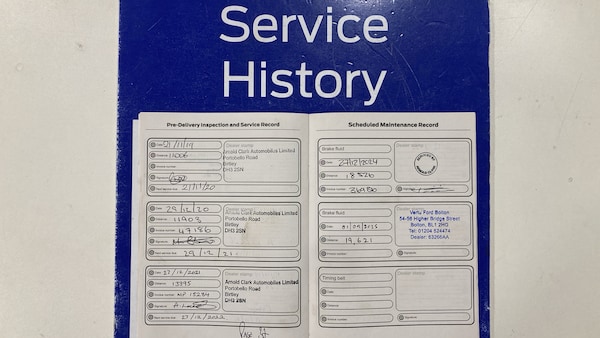 Service
History
Pre-Delivery Inspection and Service Record
Date 21/11/19
Distance 11006
Invoice number
Signature
Next Service due 21/11/20
Dealer stamp
Arnold Clark Automobiles Limited
Portobello Road
Birtley
DH3 2SN
Date 29/12/20
Distance 11903
Invoice number 47186
Signature
Next Service due 29/12/21
Dealer stamp
Arnold Clark Automobiles Limited
Portobello Road
Birtley
DH3 2SN
Date 27/12/2021
Distance 13395
Invoice number
Signature
Next Service due 27/12/2022
Dealer stamp
Arnold Clark Automobiles Limited
Portobello Road
Birtley
DH3 2SN
Scheduled Maintenance Record
Brake fluid
Date 27/12/2024
Distance 18526
Invoice number
Dealer stamp
Signature
Brake fluid
Date
Distance 19,621
Invoice number
Dealer stamp
Vertu Ford Bolton
54-56 Higher Bridge Street
Bolton, BL1 2HG
Tel: 01204 524474
Dealer:
Signature
Timing belt
Date
Distance
Invoice number
Dealer stamp
Signature